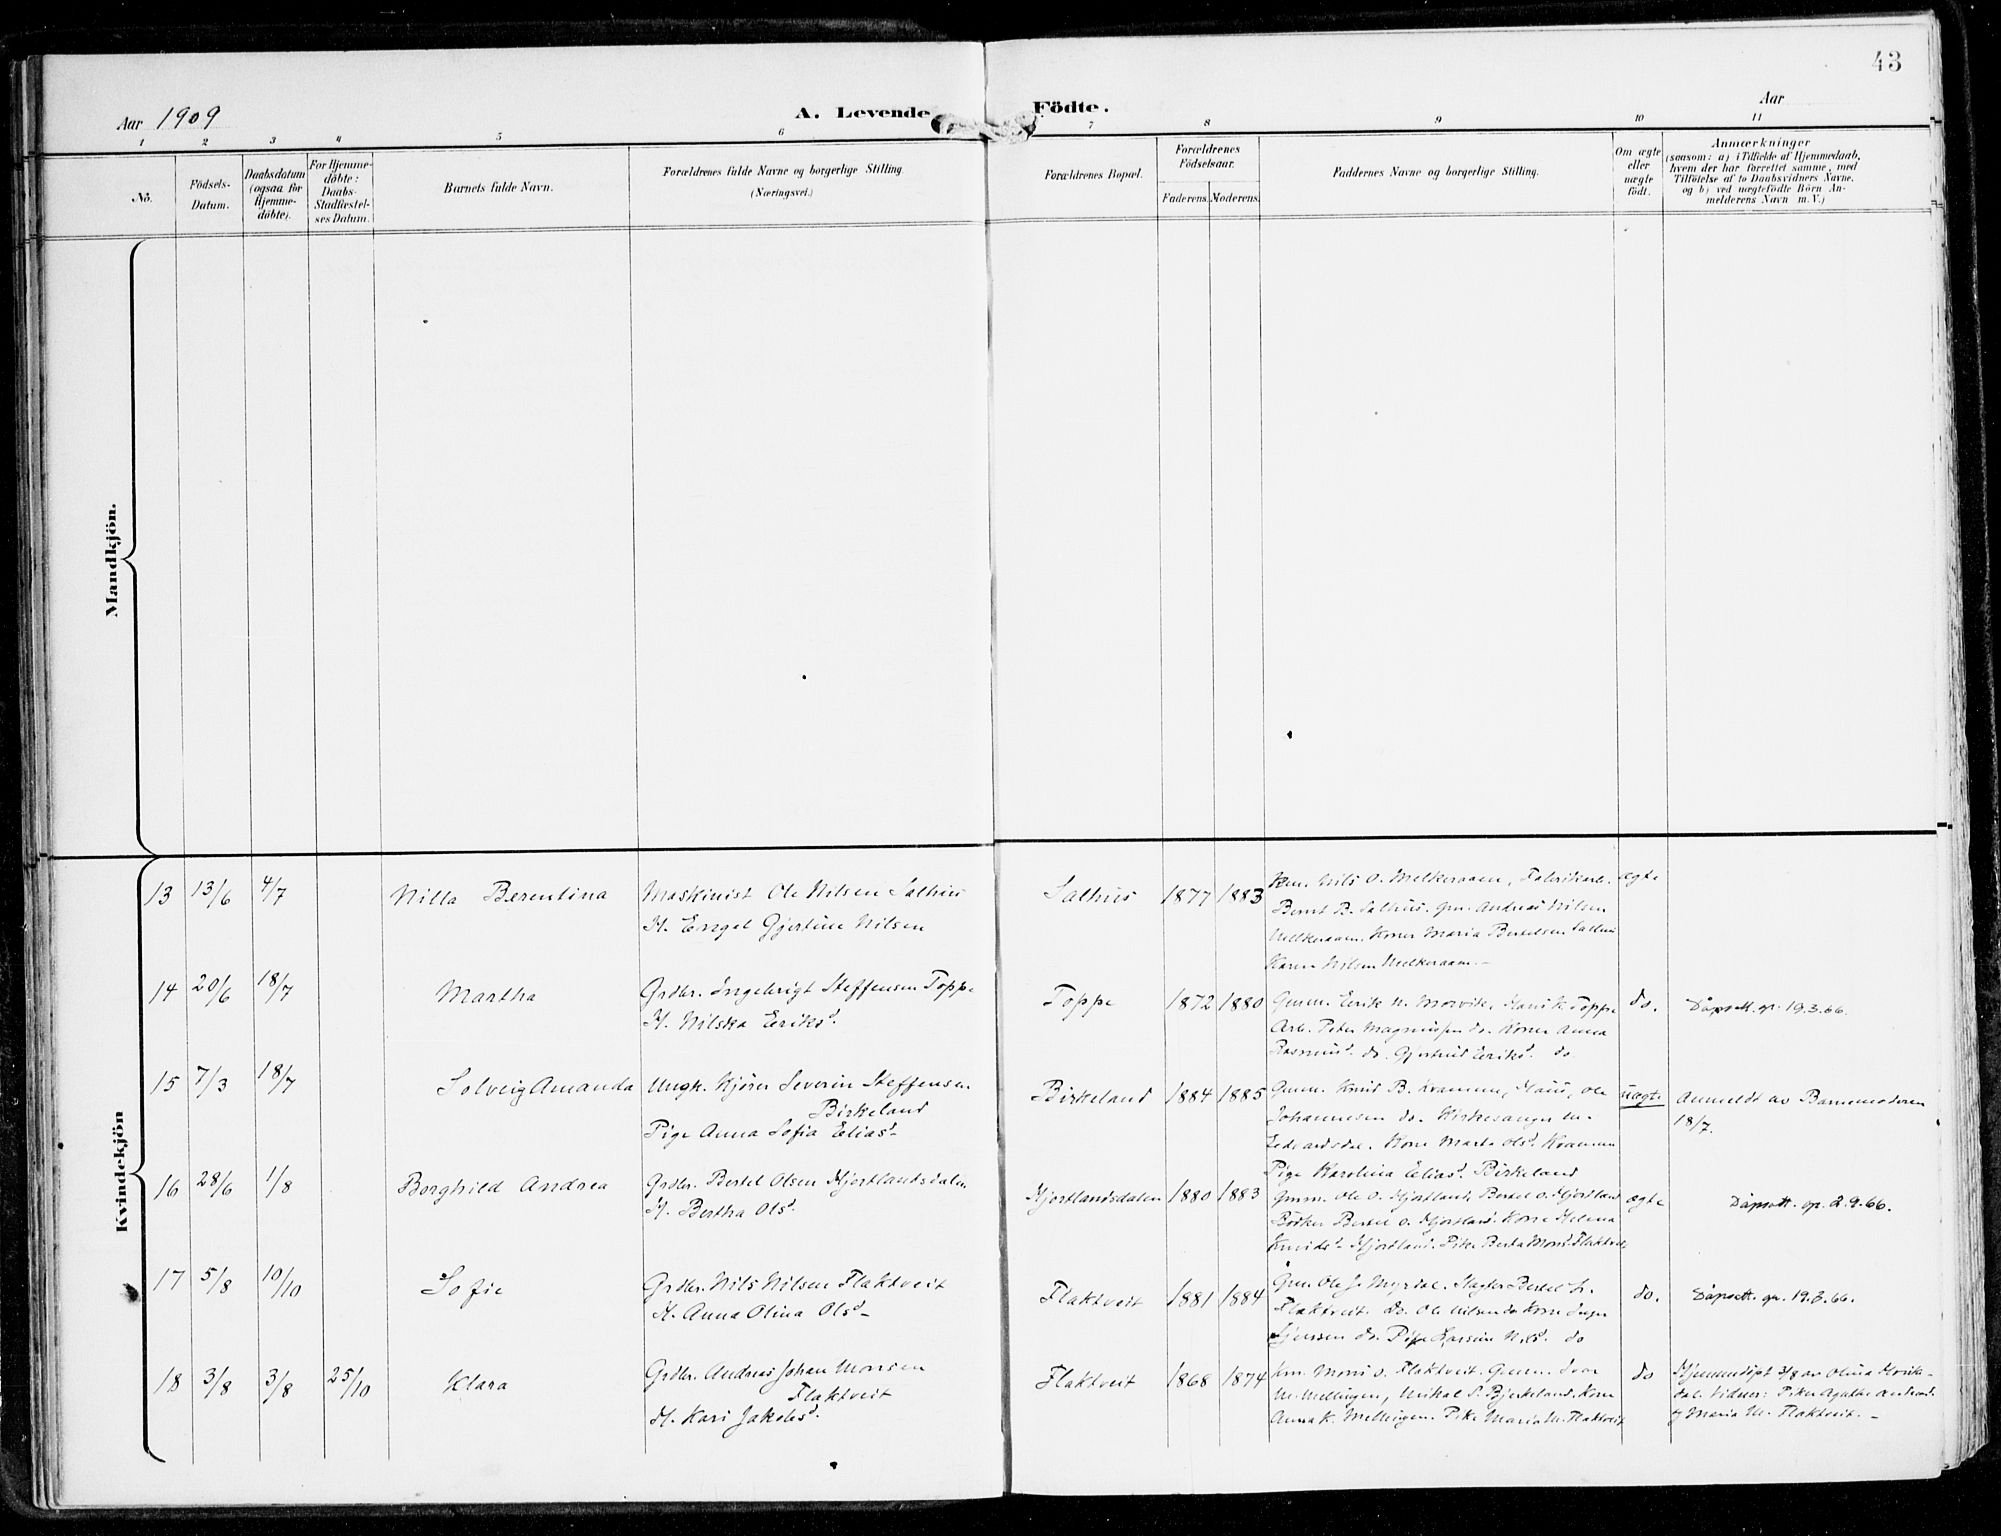 43
Aar 1909
A. Levende Födte.
Aar
1 2 3 4 5 6 7 8 9 10 11
No.
Födsels-Datum.
Daabsdatum (ogsaa for Hjemme-döbte).
For Hjemme-döbte: Daabs-Stadfæstel-ses Datum.
Barnets fulde Navn.
Forældrenes fulde Navne og borgerlige Stilling
(Næringsvei.)
Forældrenes Bopæl.
Forældrenes Födselsaar.
Faderens. Moderens.
Faddernes Navne og borgerlige Stilling.
Om ægte eller uægte födt.
Anmærkninger
(saasom: a) i Tilfælde af Hjemmedaab,
hvem der har forrettet samme, med
Tilföielse af to Daabsvidners Navne,
og b) ved uægtefödte Börn An-
melderens Navn m. V.)
Mandkjön.
Kvindekjön
13 13/6 4/7 Nilla Berentina
Maskinist Ole Nilsen Salhus
H. Engel Gjertine Nilsen
Salhus 1877 1883
Nils O. Melkeraaen, Fabrikarb.
Bernt B. Salhus. Gm. Andreas Nilsen
Melkeraaen. Koner Maria Bertelsen Salhus
Karen Nilsen Melkeraaen.-
ægte
14 20/6 18/7 Martha
Grdbr. Ingebrigt Steffensen Toppe
H. Nilska Eriksd.
Toppe 1872 1880
Gmm. Eerik N. Morvik, Toppe
Arb. Peter Magnussen do. Koner Anna
Rasmusd. do. Gjertrud Eriksd. do
do.
Dåpsatt. gr. 19.3.66.
15 7/3 18/7 Solveig Amanda
Ungk. Kjører Severin Steffensen
Birkeland
Pige Anna Sofia Eliasd-
Birkeland 1884 1885
Gmm. Knud B. Haus, Ole
Johannesen do. Kirkesanger
Kone Marta Olsd.
Pige Karolina Eliasd. Birkeland
uægte
Anmeldt av Barnemoderen
18/7.
16 28/6 1/8 Borghild Andrea
Grdbr. Bertel Olsen Hjortlandsdalen
H. Bertha Olsd.
Hjortlandsdalen 1880 1883
Gmm. Ole O. Hjortland, Bertel O. Hjortland
Bødker Bertel O. Hjortland. Kone Helena
Knudsd- Hjortland. Pike Berta Monsd. Flaktveit
ægte
Dåpsatt. gr. 2.9.66.
17 5/8 10/10 Sofie
Grdbr. Nils Nilsen Flaktveit
H. Anna Olina Olsd-
Flaktveit 1881 1884
Gmm Ole J. Myrdal. Slagter Bertel
Flaktveit. do. Ole Nilsen do Kone Inger
do. Pige do
do.
Dåpsatt. gr. 19.3.66.
18 3/8 3/8 25/10 Klara
Grdbr. Andreas Johan Monsen
Flaktveit
H. Kari Jakobsd.
Flaktveit 1868 1874
Mons O. Flaktveit. Gmm. Ivar
M. Mellingen, Mikal S. Bjerkeland. Kone
Anna K. Mellingen. Pike Maria M. Flaktveit
do
Hjemmedøpt 3/8 av Olina
Vidner: Piker Agathe
og Maria M. Flaktveit. -